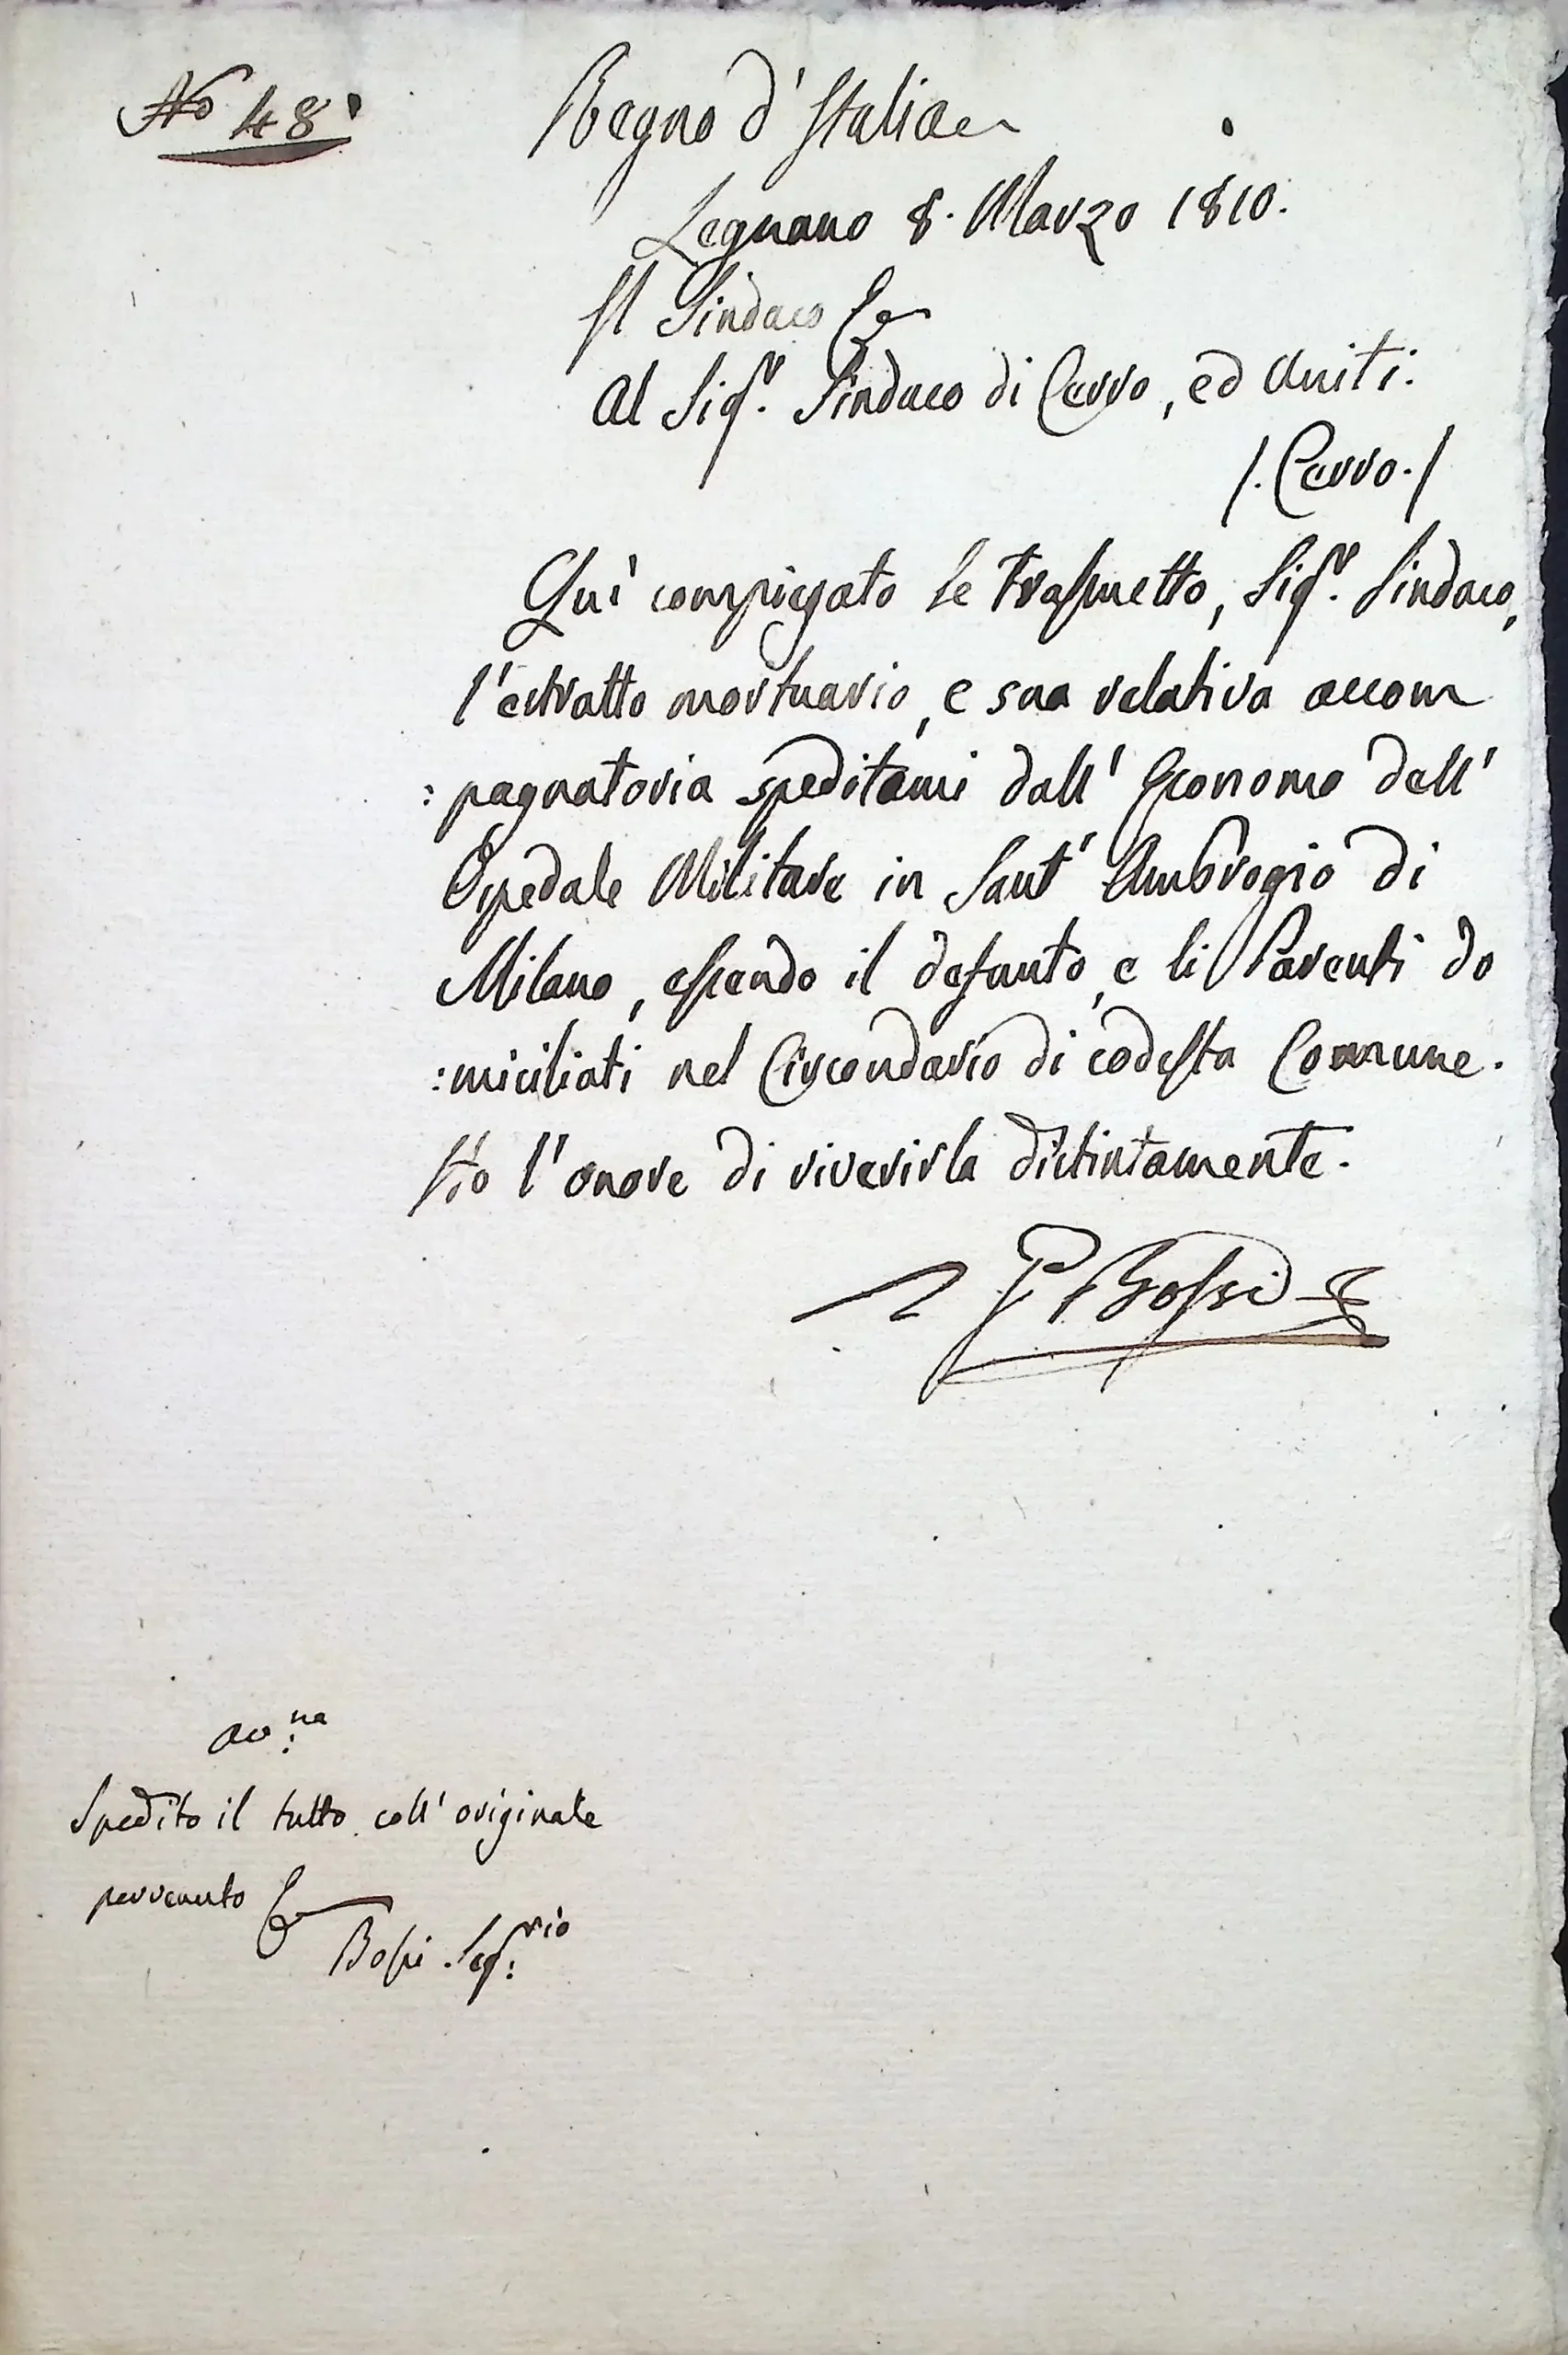 No 48
Regno d'Italia
Legnano 8. Marzo 1810.
Il Sindaco
Al Sigr. Sindaco di Cerro, ed Uniti.
/. Cerro. /
Quì compiegato le trasmetto, Sigr. Sindaco,
l'estratto mortuario, e sua relativa accom
:pagnatoria speditami dall' Economo dell'
Ospedale Militare in Sant' Ambrogio di
Milano, essendo il defunto, e li Parenti do
:miciliati nel Circondario di codesta Comune.
Hò l'onore di riverirla distintamente.
Bossi
Spedito il tutto coll' originale
pervenuto
Bossi Seg:rio